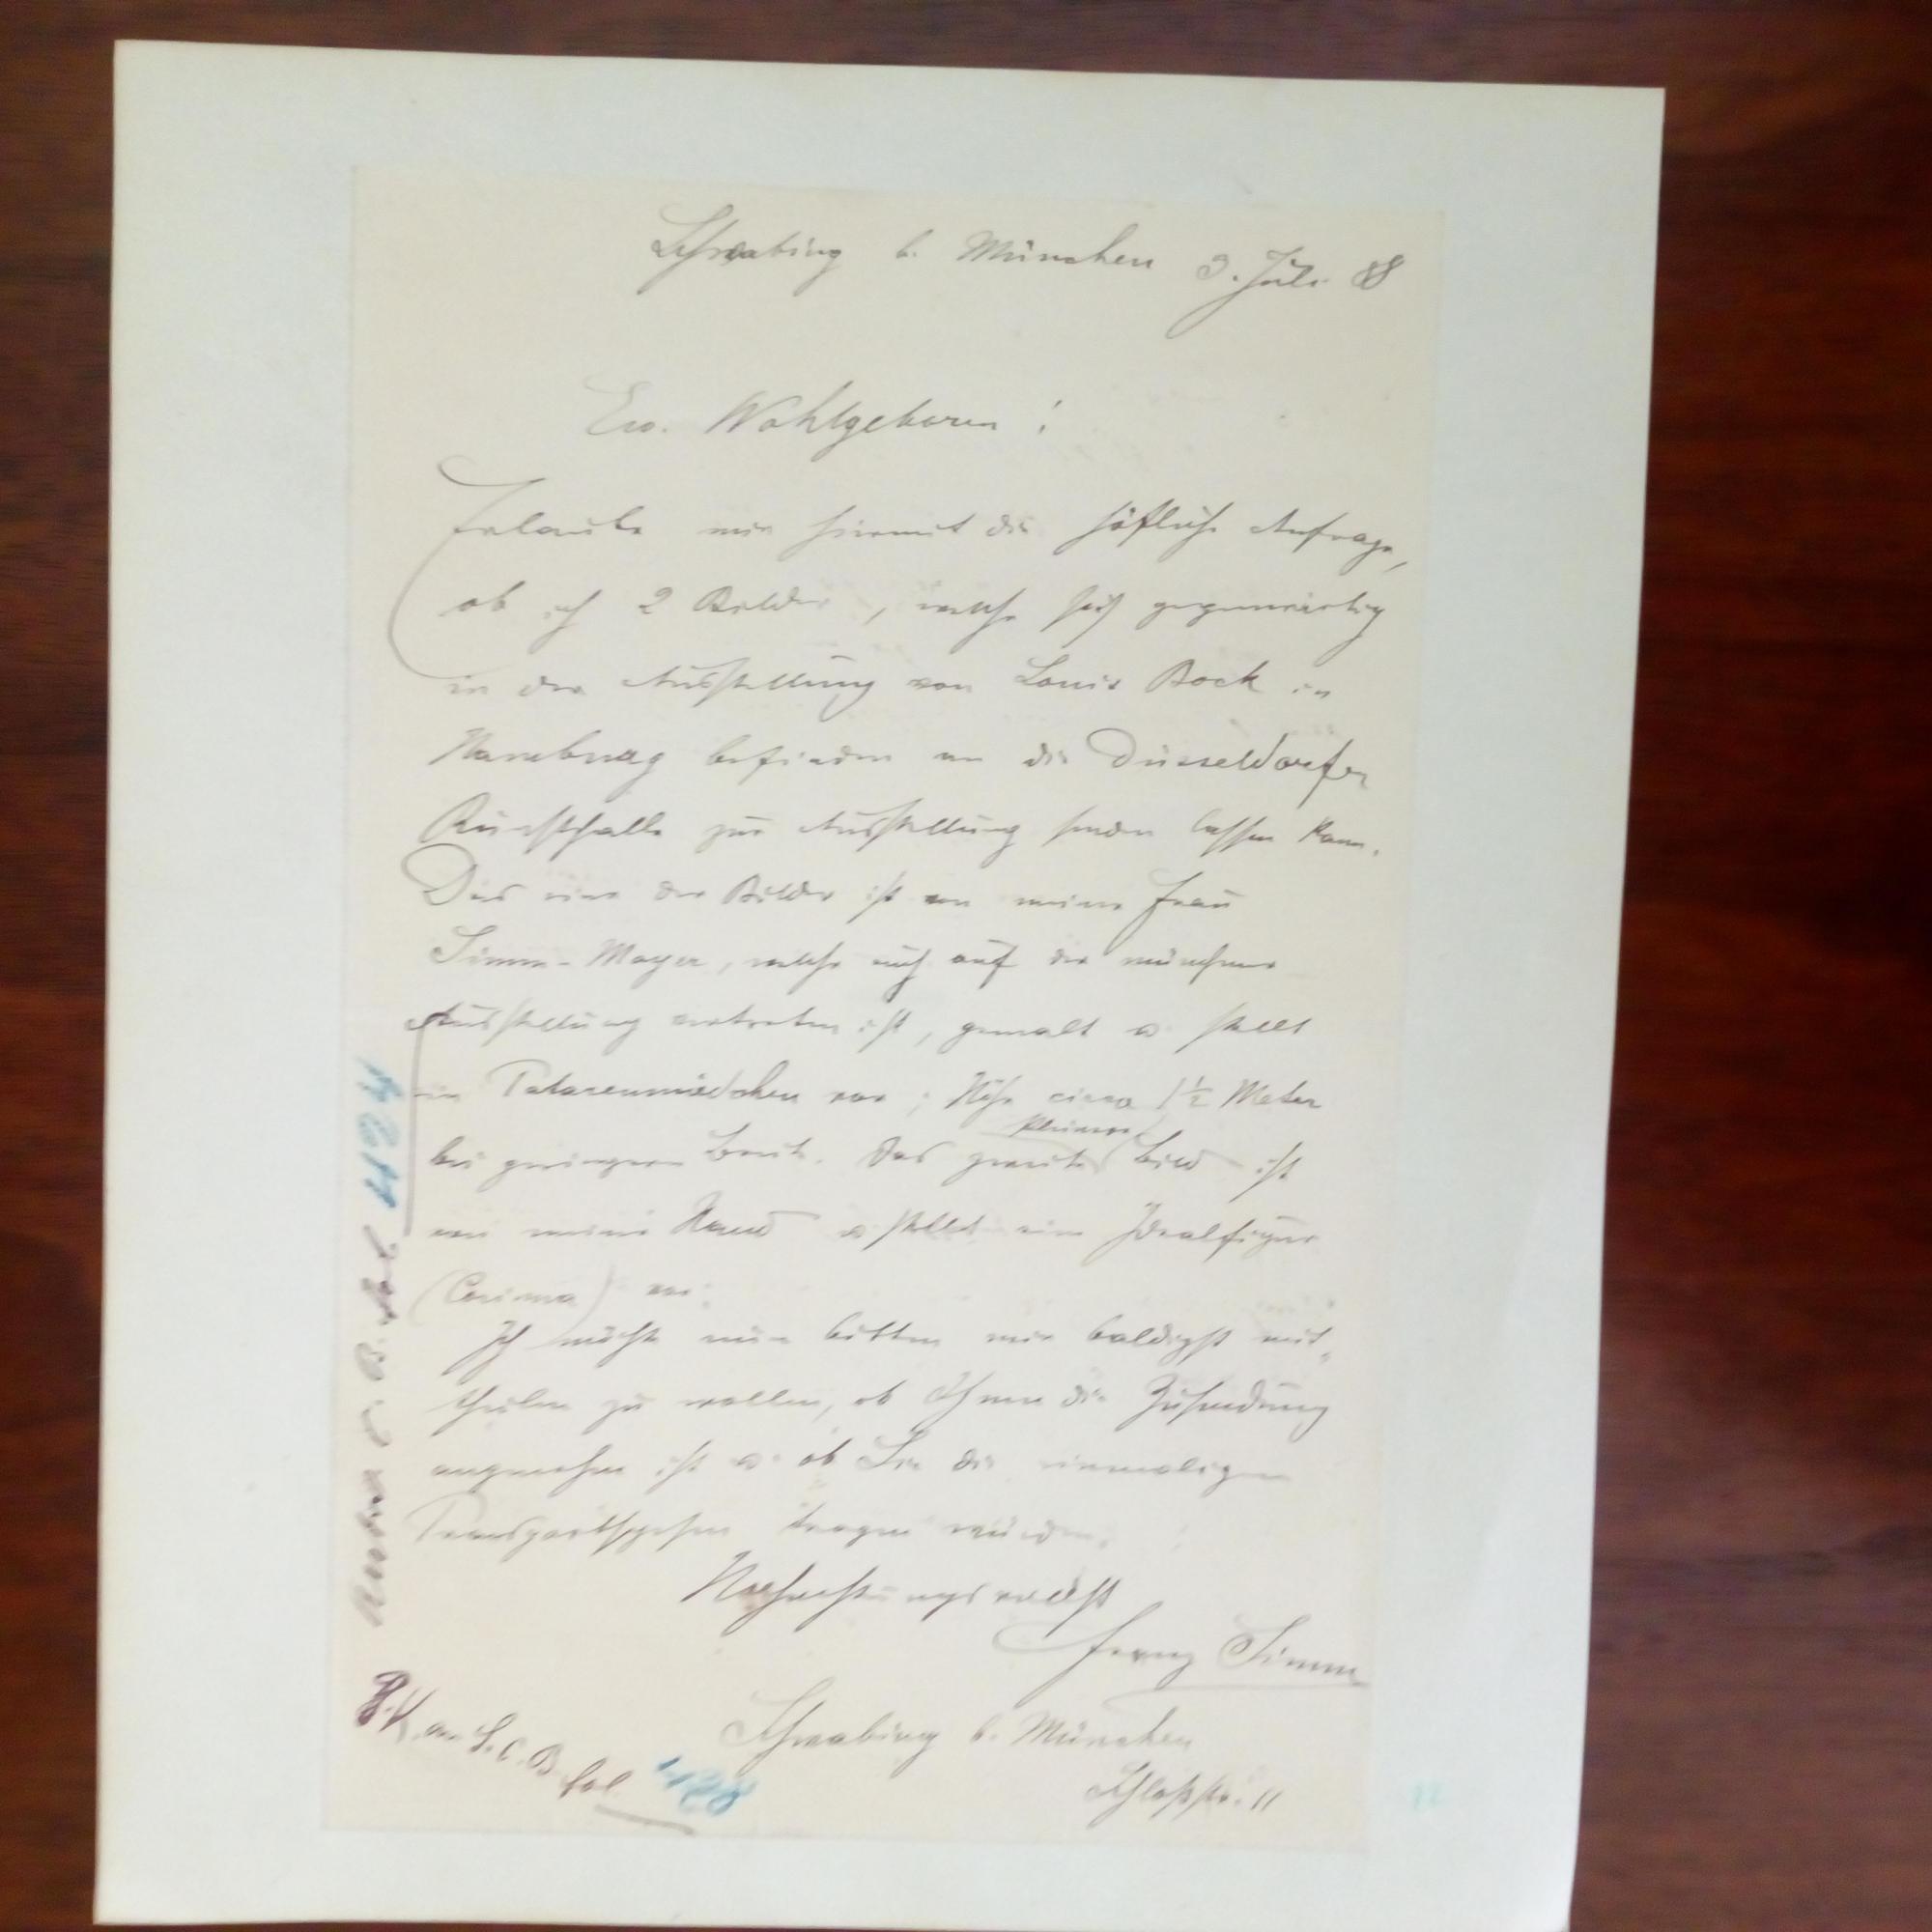 Schwabing b. München 3. Juli 88
Ew. Wohlgeboren!
Erlaube mir hiermit die höfliche Anfrage,
ob ich 2 Bilder, welche sich gegenwärtig
in der Ausstellung von Louis Bock in
Hamburg befinden an die Düsseldorfer
Kunsthalle zur Ausstellung senden lassen kann.
Das eine der Bilder ist von meiner Frau
Simm-Mayer, welche auch auf der münchner
Ausstellung vertreten ist, gemalt u. stellt
ein Tatarenmädchen vor; Höhe circa 1½ Meter
bei geringerer Breite. Das zweite kleinere Bild ist
von meiner Hand u. stellt eine Idealfigur
(Corinna) vor.
Ich möchte nun bitten mir baldigst mit„
theilen zu wollen, ob Ihnen die Zusendung
angenehm ist u. ob Sie die einmaligen
Transportspesen tragen würden.
Hochachtungsvollst
Franz Simm
Schwabing b. München
Schloßstr. 11
fol.